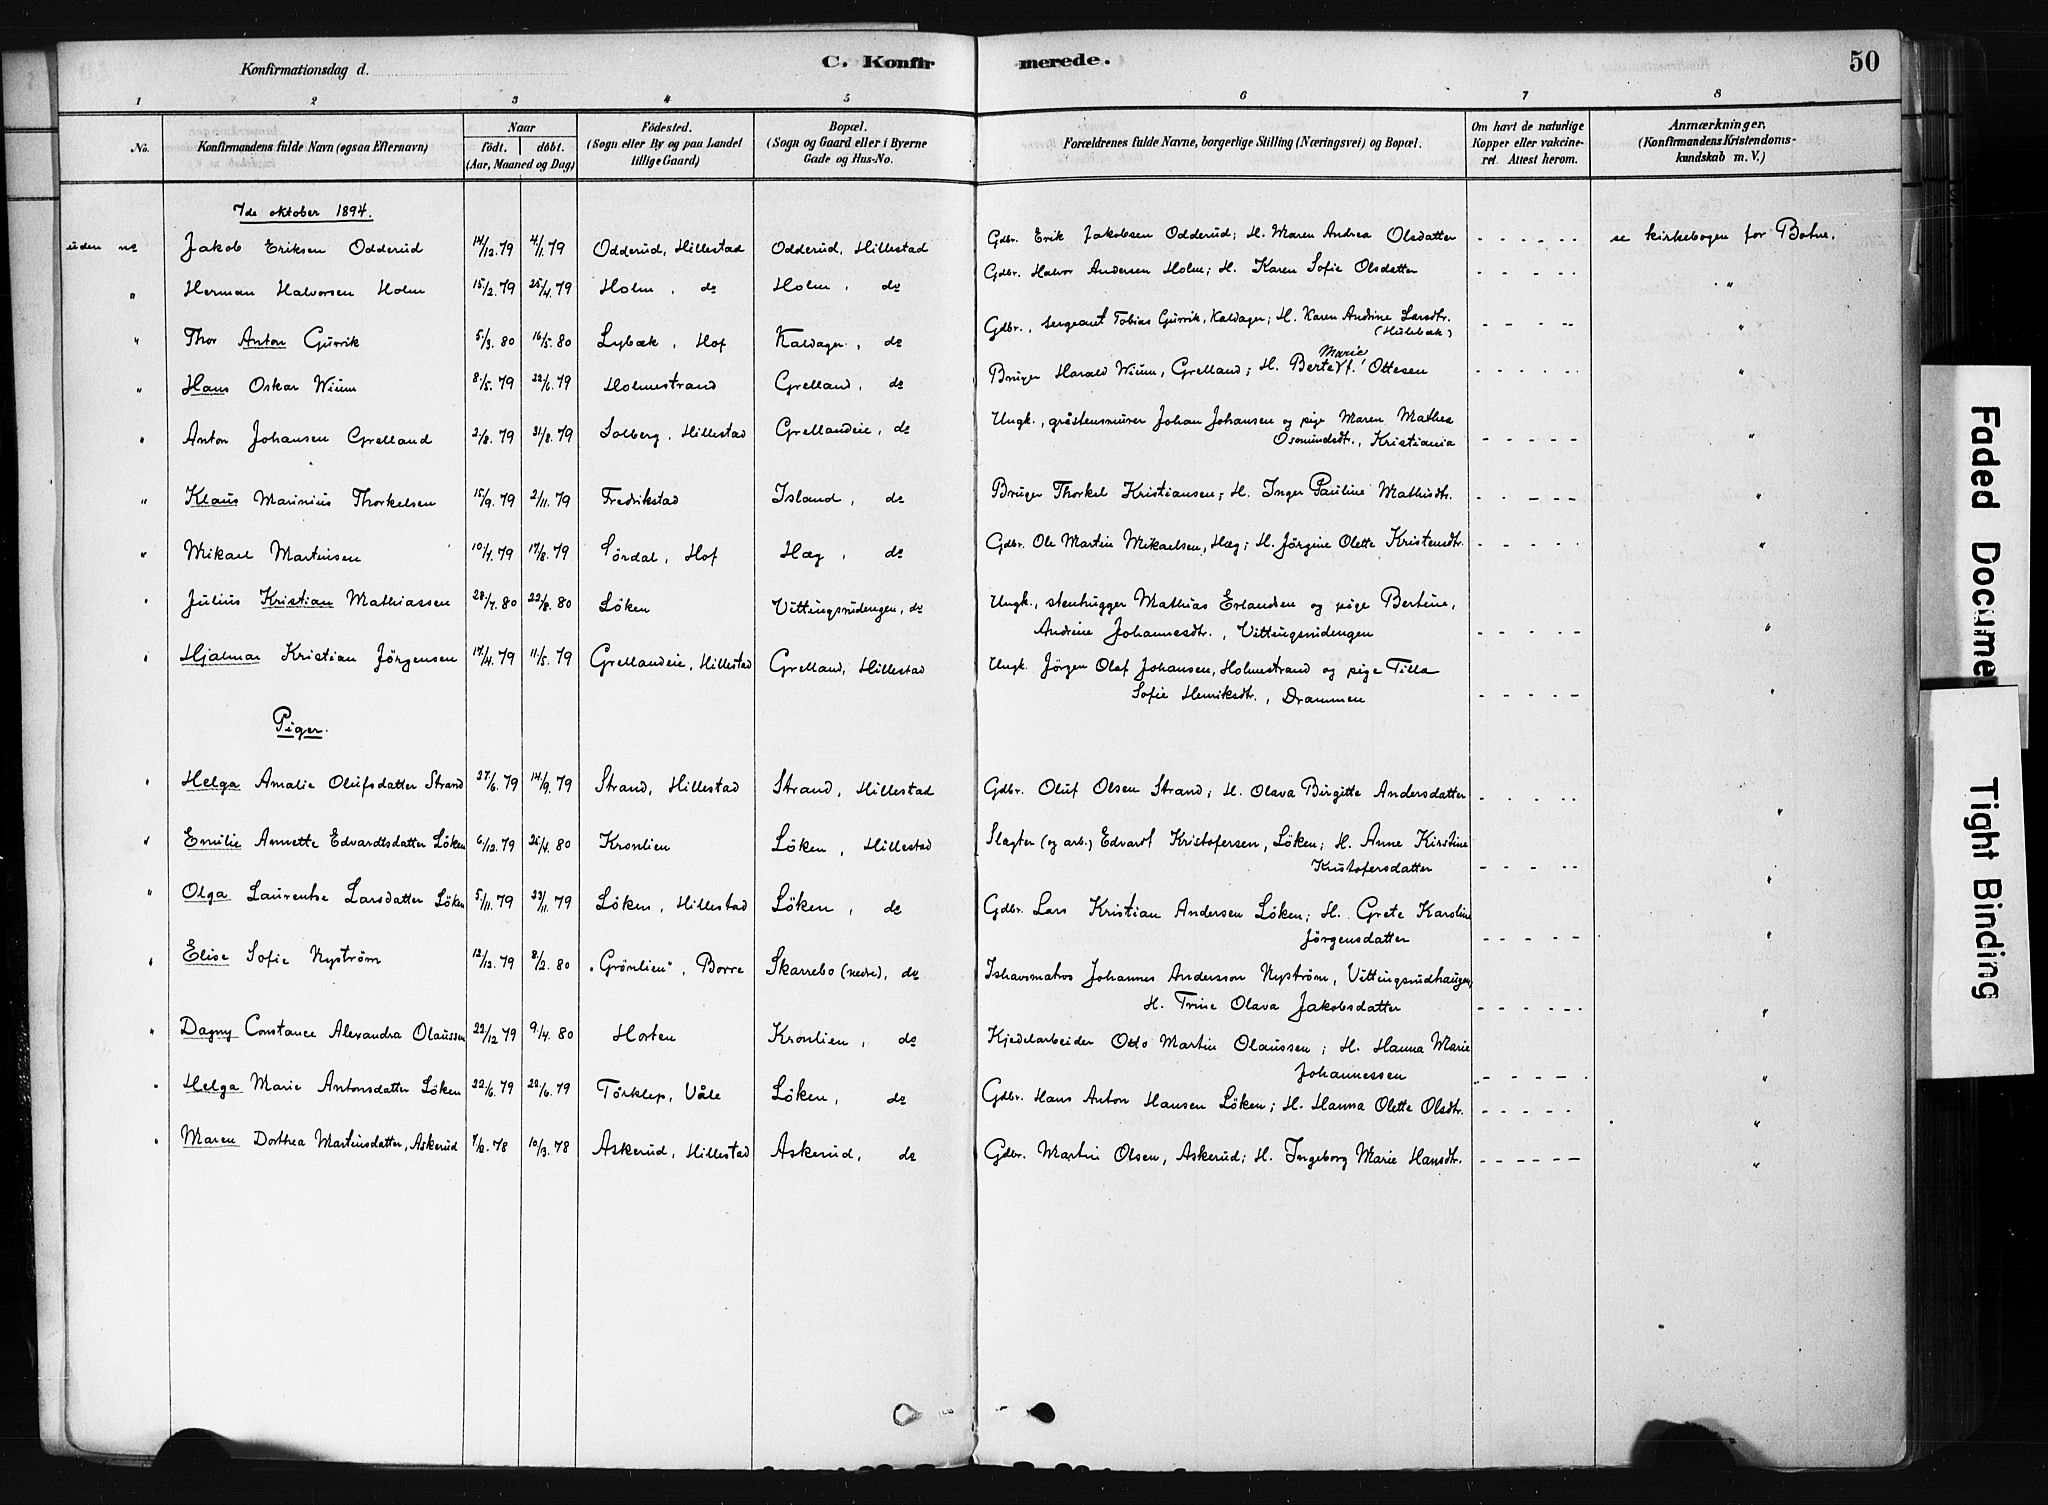 Konfirmationsdag d.
C. Konfirmerede.
50
1 2 3 4 5 6 7 8
No.
Konfirmandens fulde Navn (ogsaa Efternavn)
Naar
födt. döbt.
(Aar, Maaned og Dag)
Födested.
(Sogn eller By og paa Landet
tillige Gaard)
Bopæl.
(Sogn og Gaard eller i Byerne
Gade og Hus-No.
Forældrenes fulde Navne, borgerlige Stilling (Næringsvei) og Bopæl.
Om havt de naturlige
Kopper eller vakcine-
ret. Attest herom.
Anmærkninger.
(Konfirmandens Kristendoms-
kundskab m. V.)
7de oktober 1894.
uden no Jakob Eriksen Odderud 14/12.79 4/1.79 Odderud, Hillestad Odderud, Hillestad Gdbr. Erik Jakobsen Odderud; H. Maren Andrea Olsdatter - - - - - se kirkebogen for Botne.
" Herman Halvorsen Holm 15/2.79 25/4.79 Holm, do Holm, do Gdbr. Halvor Andersen Holm; H. Karen Sofie Olsdatter - - - - - "
" Thor Anton Gurrik 5/3.80 16/5.80 Lybæk, Hof Kaldager, do Gdbr., sergeant Tobias Gurrik, Kaldager; H. Karen Andrine Larsdtr. - - - - - "
(Hulebæk)
" Hans Oskar Wium 8/5.79 22/6.79 Holmestrand Grelland, do Bruger Harald Wium, Grelland; H. Berte Marie, f. Ottesen - - - - - "
" Anton Johansen Grelland 2/8.79 31/8.79 Solberg, Hillestad Grellandeie, do Ungk., gråstensmurer Johan Johansen og pige Maren Mathea
Osmundsdtr., Kristiania - - - - - "
" Klaus Marinius Thorkelsen 15/9.79 2/11.79 Fredrikstad Island, do Bruger Thorkel Kristiansen; H. Inger Pauline Mathisdtr. - - - - - "
" Mikael Martinsen 10/7.79 17/8.79 Sørdal, Hof Hæg, do Gdbr. Ole Martin Mikaelsen, Hæg; H. Jörgine Olette Kristensdtr. - - - - - "
" Julius Kristian Mathiassen 28/7.80 22/8.80 Löken Vittingsrudengen, do Ungk., stenhugger Mathias Erlandsen og pige Bertine,
Andrine Johannesdtr., Vittingsrudengen - - - - - "
" Hjalmar Kristian Jörgensen 17/4.79 11/5.79 Grellandeie, Hillestad Grelland, Hillestad Ungk. Jörgen Olaf Johansen, Holmestrand og pige Tilla
Sofie Henriksdtr., Drammen - - - - - "
Piger.
" Helga Amalie Olufsdatter Strand 27/6.79 14/9.79 Strand, Hillestad Strand, Hillestad Gdbr. Oluf Olsen Strand; H. Olava Birgitte Andersdatter - - - - - "
" Emilie Annette Edvardtsdatter Löken 6/12.79 25/4.80 Kronlien Löken, Hillestad Slagter (og arb.) Edvardt Kristofersen, Löken; H. Anne Kirstine
Kristofersdatter - - - - - "
" Olga Laurentse Larsdatter Löken 5/11.79 23/11.79 Löken, Hillestad Löken, do Gdbr. Lars Kristian Andersen Löken; H. Grete Karoline
Jörgensdatter - - - - - "
" Elise Sofie Nyström 12/12.79 8/2.80 "Grönlien", Borre Skarrebo (nedre), do Ishavsmatros Johannes Andersson Nyström, Vittingsrudhaugen,
H. Trine Olava Jakobsdatter - - - - - "
" Dagny Constance Alexandra Olaussen 22/12.79 9/4.80 Horten Kronlien, do Kjedelarbeider Otto Martin Olaussen; H. Hanna Marie
Johannessen - - - - - "
" Helga Marie Antonsdatter Löken 22/6.79 22/6.79 Törklep, Våle Löken, do Gdbr. Hans Anton Hansen Löken; H. Hanna Olette Olsdtr. - - - - - "
" Maren Dorthea Martinsdatter, Askerud 7/2.78 10/3.78 Askerud, Hillestad Askerud, do Gdbr. Martin Olsen, Askerud; H. Ingeborg Marie Hansdtr. - - - - - "
Faded Docume
Tight Binding